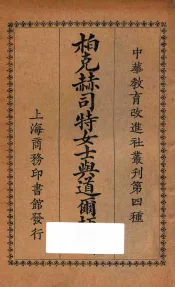 中華教育改進社叢刊第四種
柏克赫司特女士與道爾
上海商務印書館發行